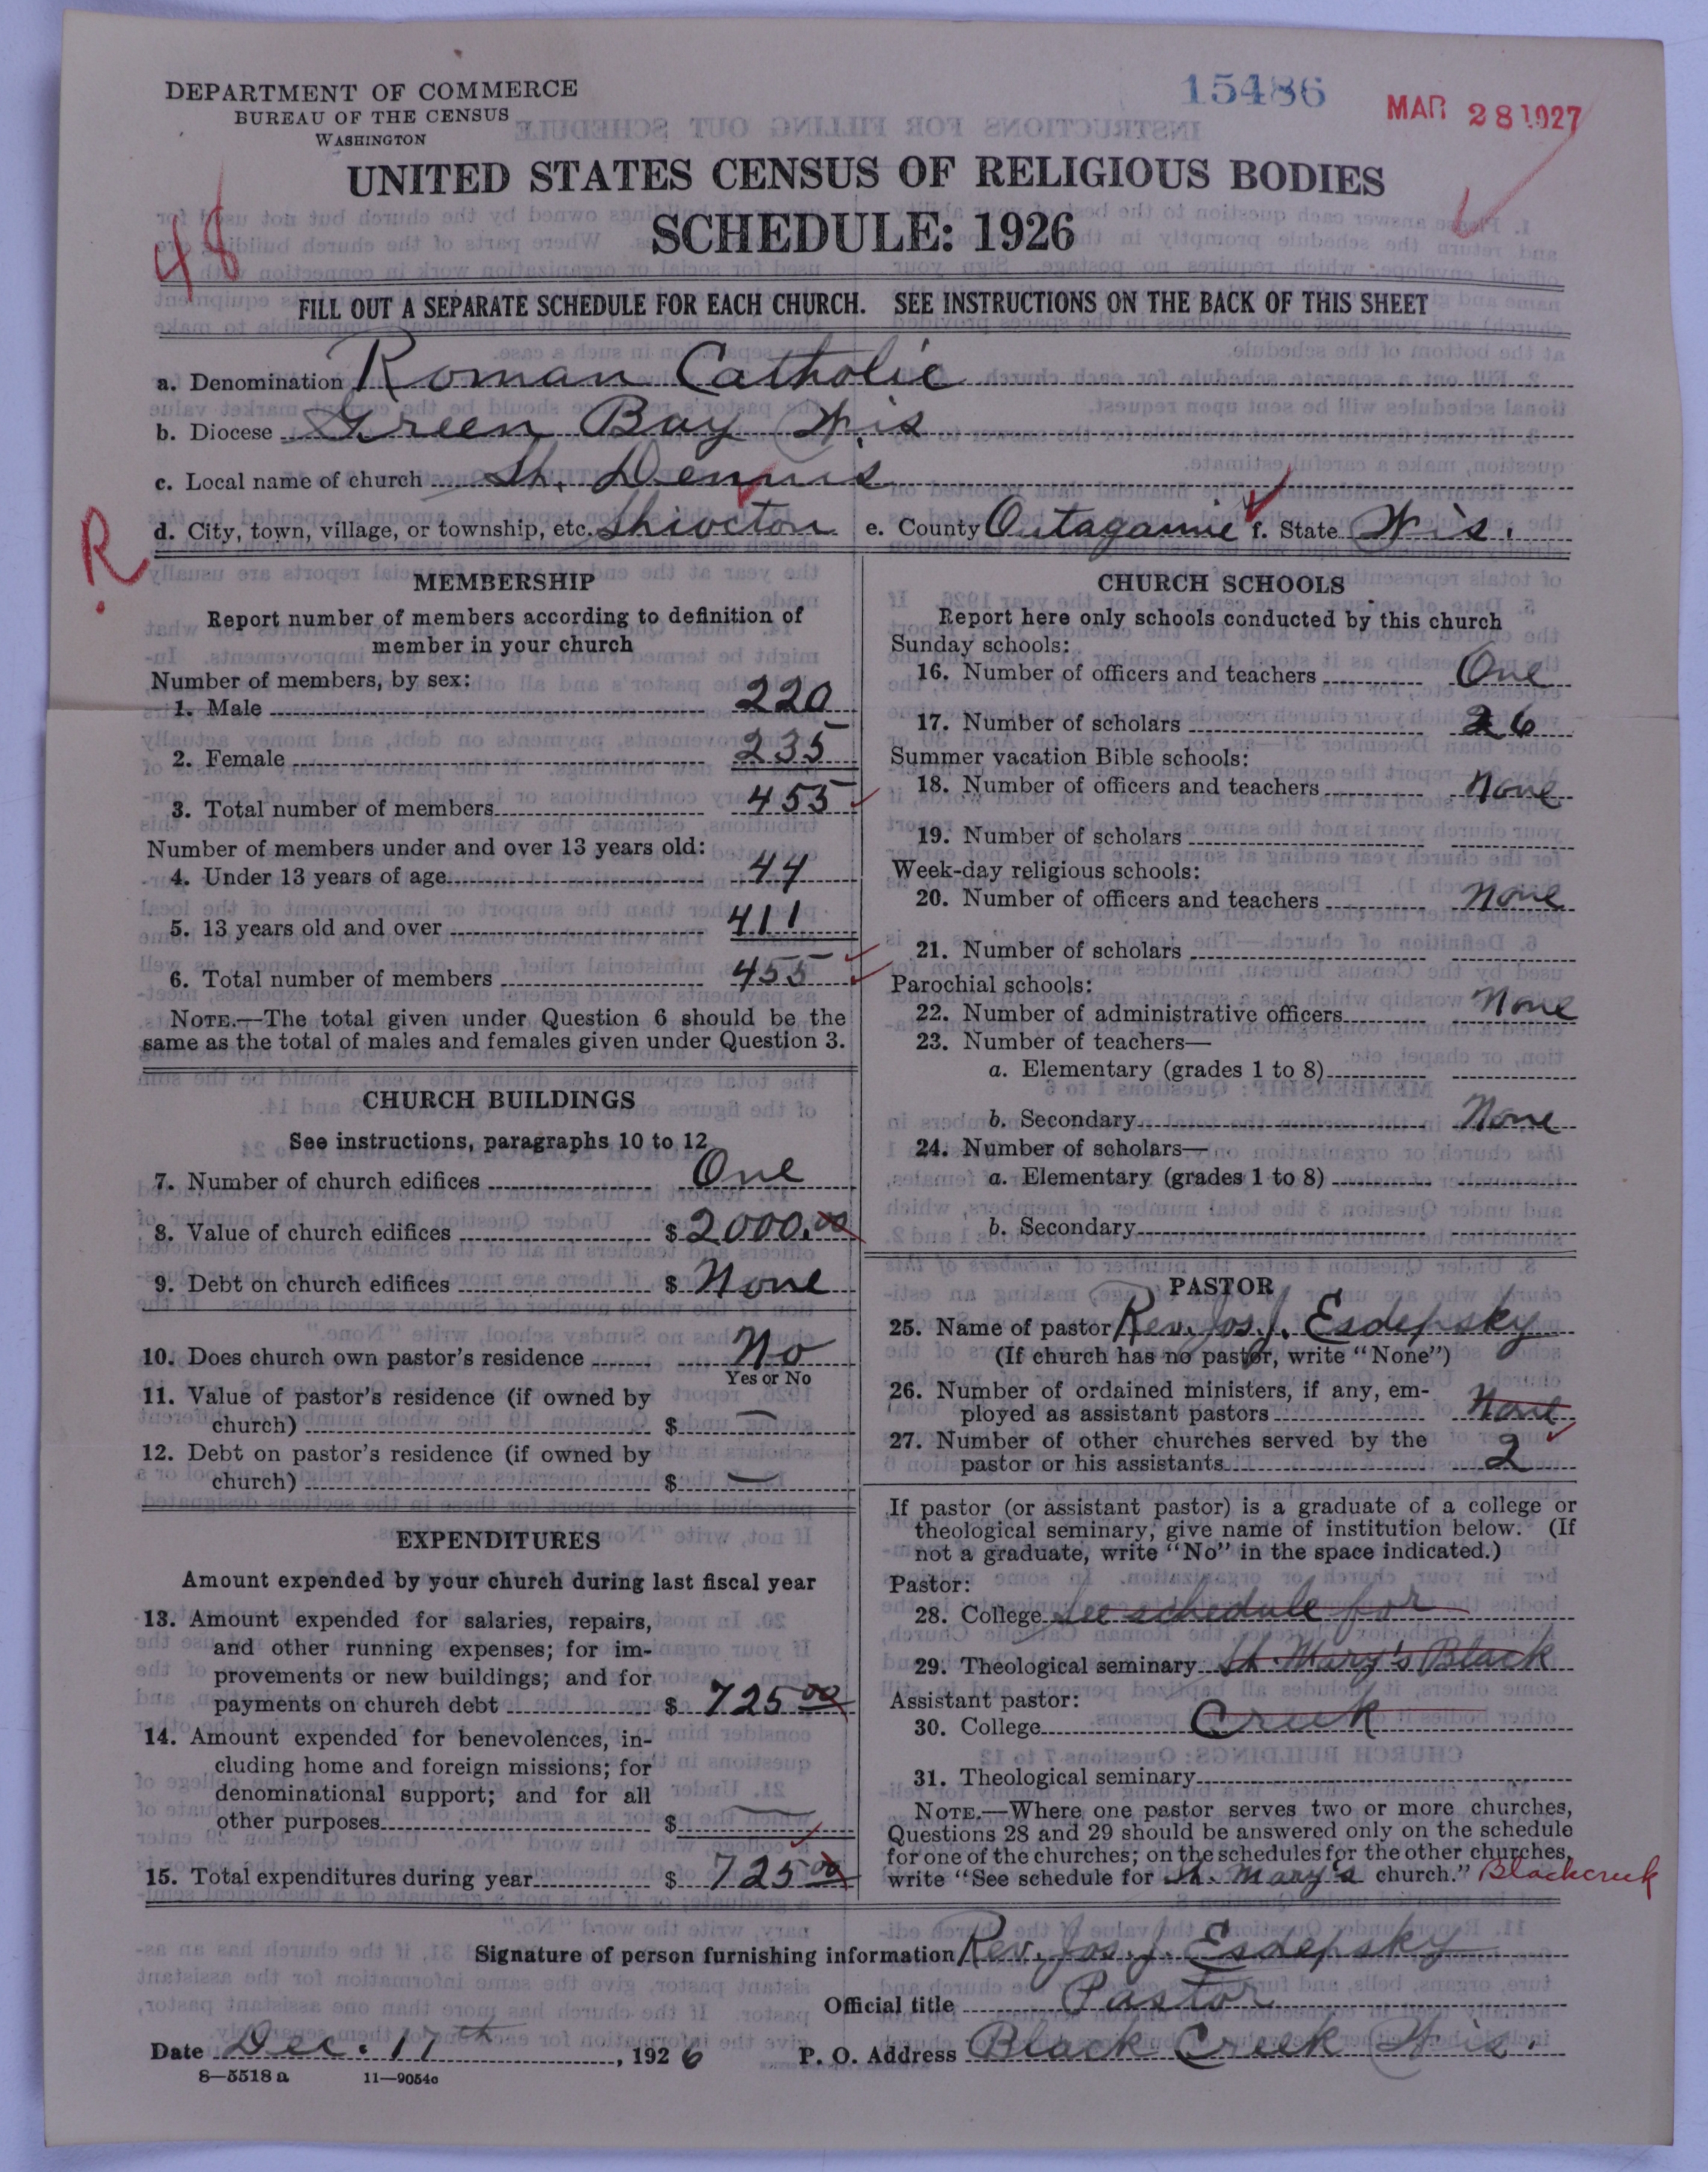 DEPARTMENT OF COMMERCE
BUREAU OF THE CENSUS
WASHINGTON
15486
MAR 28 1927
UNITED STATES CENSUS OF RELIGIOUS BODIES
SCHEDULE: 1926
48
FILL OUT A SEPARATE SCHEDULE FOR EACH CHURCH. SEE INSTRUCTIONS ON THE BACK OF THIS SHEET
a. Denomination Roman Catholic
b. Diocese Green Bay Wis
c. Local name of church St. Dennis
R.
d. City, town, village, or township, etc. Shiocton e. County Outagamie f. State Wis.
MEMBERSHIP
Report number of members according to definition of
member in your church
Number of members, by sex:
1. Male 220
2. Female 235
3. Total number of members 455
Number of members under and over 13 years old:
4. Under 13 years of age 44
5. 13 years old and over 411
6. Total number of members 455
NOTE.—The total given under Question 6 should be the
same as the total of males and females given under Question 3.
CHURCH BUILDINGS
See instructions, paragraphs 10 to 12
7. Number of church edifices One
8. Value of church edifices $ 2000.00
9. Debt on church edifices $ None
10. Does church own pastor's residence No
Yes or No
11. Value of pastor's residence (if owned by
church) $ —
12. Debt on pastor's residence (if owned by
church) $ —
EXPENDITURES
Amount expended by your church during last fiscal year
13. Amount expended for salaries, repairs,
and other running expenses; for im-
provements or new buildings; and for
payments on church debt $ 725 00
14. Amount expended for benevolences, in-
cluding home and foreign missions; for
denominational support; and for all
other purposes $ —
15. Total expenditures during year $ 725 00
CHURCH SCHOOLS
Report here only schools conducted by this church
Sunday schools:
16. Number of officers and teachers One
17. Number of scholars 26
Summer vacation Bible schools:
18. Number of officers and teachers None
19. Number of scholars
Week-day religious schools:
20. Number of officers and teachers None
21. Number of scholars
Parochial schools:
22. Number of administrative officers None
23. Number of teachers—
a. Elementary (grades 1 to 8)
b. Secondary None
24. Number of scholars—
a. Elementary (grades 1 to 8)
b. Secondary
PASTOR
25. Name of pastor Rev. Jos. J. Esdepsky
(If church has no pastor, write "None")
26. Number of ordained ministers, if any, em-
ployed as assistant pastors None
27. Number of other churches served by the
pastor or his assistants 2
If pastor (or assistant pastor) is a graduate of a college or
theological seminary, give name of institution below. (If
not a graduate, write "No" in the space indicated.)
Pastor:
28. College See schedule for
29. Theological seminary St. Mary's Black
Assistant pastor:
30. College Creek
31. Theological seminary
NOTE.—Where one pastor serves two or more churches,
Questions 28 and 29 should be answered only on the schedule
for one of the churches; on the schedules for the other churches,
write "See schedule for St. Mary's church." Blackcreek
Signature of person furnishing information Rev. Jos. J. Esdepsky
Official title Pastor
Date Dec. 17th, 1926 P. O. Address Black Creek Wis.
8—5518 a 11—9054c